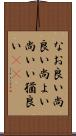 なお良い尚
良い尚よい
尚いい猶良
い